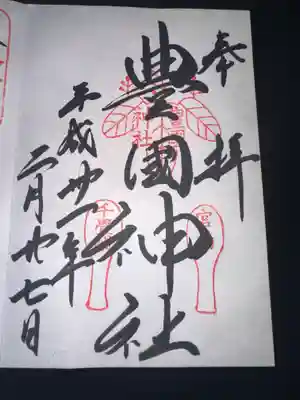 奉拝
豊國神社
平成卅一年
二月廿七日